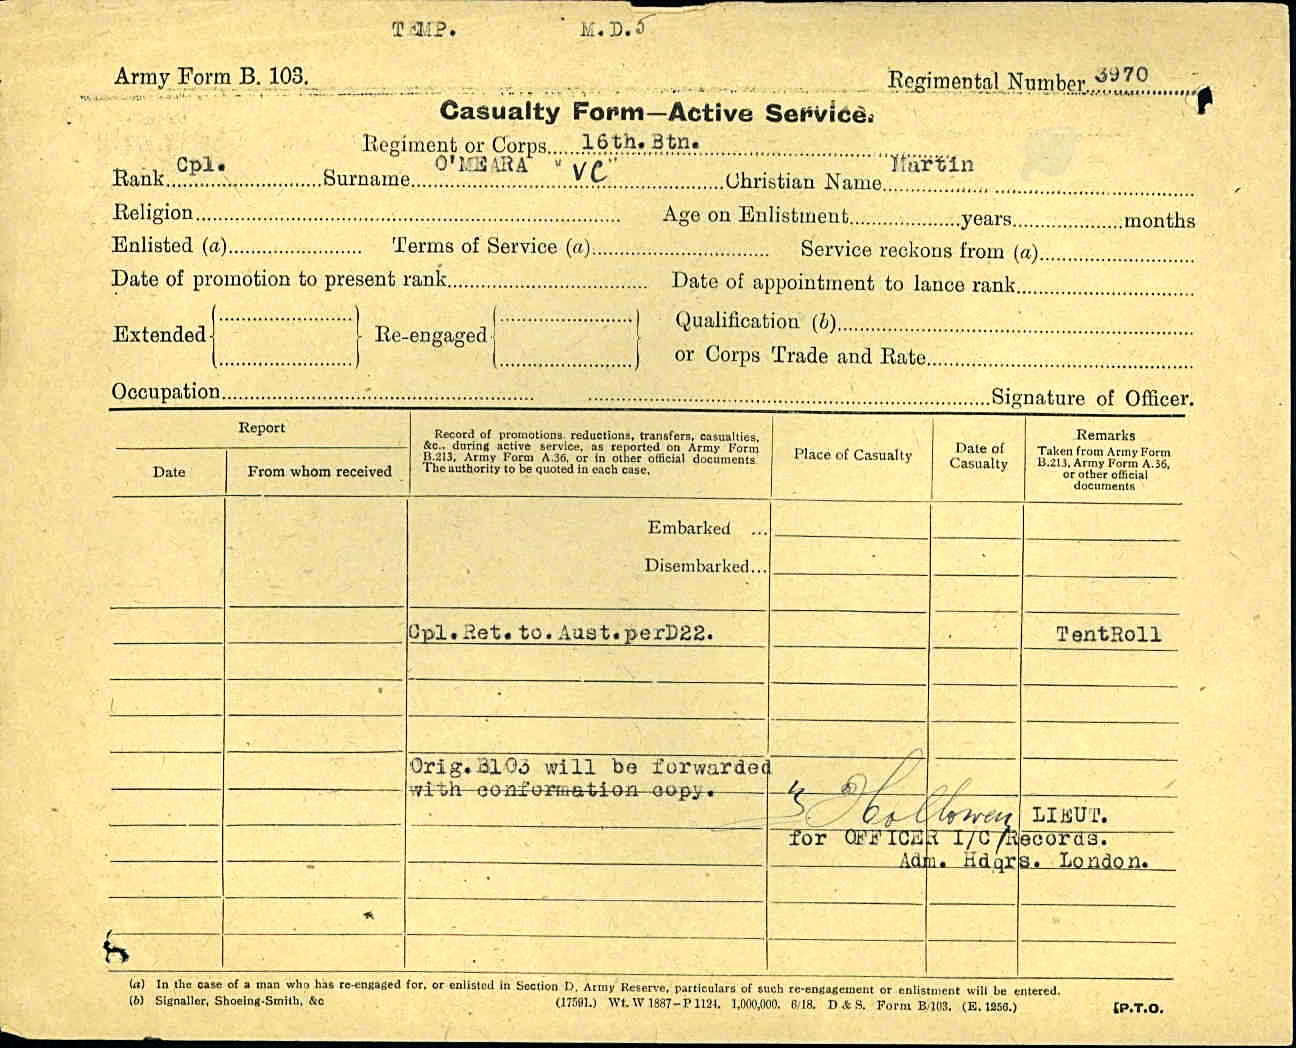 TEMP. M.D.5
Army Form B. 103. Regimental Number 3970
Casualty Form—Active Service.
Regiment or Corps 16th.Btn.
Rank Cpl. Surname O'MEARA "VC" Christian Name Martin
Religion Age on Enlistment years months
Enlisted (a) Terms of Service (a) Service reckons from (a)
Date of promotion to present rank Date of appointment to lance rank
Extended Re-engaged Qualification (b)
or Corps Trade and Rate
Occupation Signature of Officer.
Report
Date
From whom received
Record of promotions, reductions, transfers, casualties,
&c., during active service, as reported on Army Form
B.213, Army Form A.36, or in other official documents
The authority to be quoted in each case.
Place of Casualty
Date of
Casualty
Remarks
Taken from Army Form
B.213, Army Form A.36,
or other official
documents
Embarked ...
Disembarked...
Cpl.Ret.to.Aust.perD22. TentRoll
Orig.B103 will be forwarded
with conformation copy.
Hollowen LIEUT.
for OFFICER I/C Records.
Adm. Hdqrs. London.
(a) In the case of a man who has re-engaged for, or enlisted in Section D, Army Reserve, particulars of such re-engagement or enlistment will be entered.
(b) Signaller, Shoeing-Smith, &c (17591.) Wt. W 1887—P 1124. 1,000,000. 6/18. D & S. Form B/103. (E. 1256.)
[P.T.O.